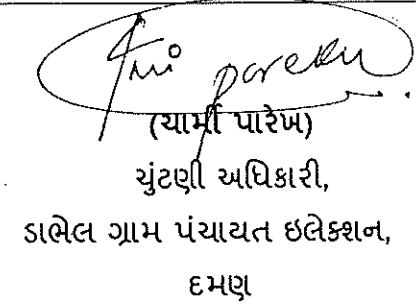 (ચાર્મી પારેખ)
ચુંટણી અધિકારી,
ડાભેલ ગ્રામ પંચાયત ઇલેક્શન,
દમણ